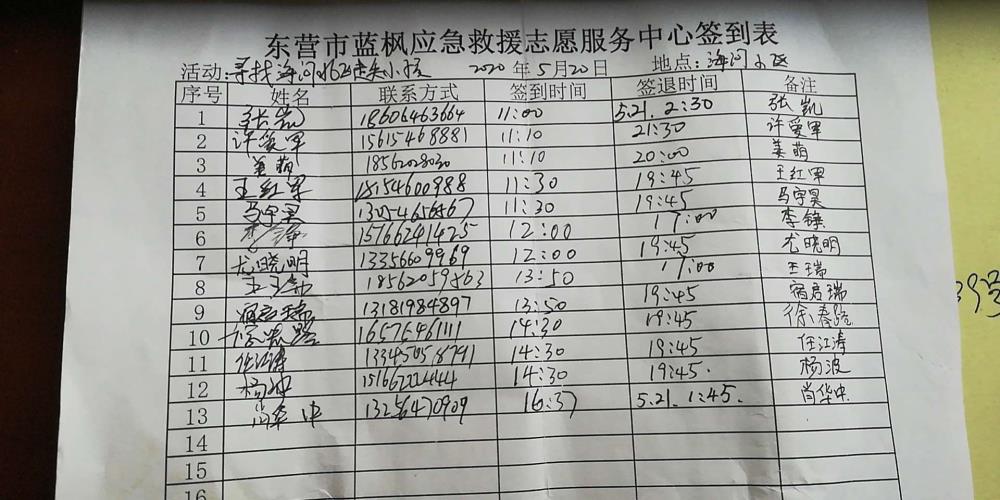 东营市蓝枫应急救援志愿服务中心签到表
活动:寻找海河小区走失小孩 2020年5月20日 地点:海河小区
序号 姓名 联系方式 签到时间 签退时间 备注
1 张凯 18606463664 11:00 5.21. 2:30 张凯
2 许爱军 15615468881 11:10 21:30 许爱军
3 姜萌 11:10 20:00 姜萌
4 王红军 18154600988 11:30 19:45 王红军
5 马宇昊 13054656867 11:30 19:45 马宇昊
6 李锤 15766241425 12:00 17:00 李锤
7 尤晓明 13356609969 12:00 19:45 尤晓明
8 18562059863 13:50 17:00 王瑞
9 宿启瑞 13181984897 13:50 19:45 宿启瑞
10 16575461111 14:30 19:45 徐春路
11 任江涛 13345058791 14:30 19:45 任江涛
12 杨波 15166222444 14:30 19:45. 杨波
13 肖华中 13256470909 16:37 5.21. 1:45. 肖华中
14
15
16
39号